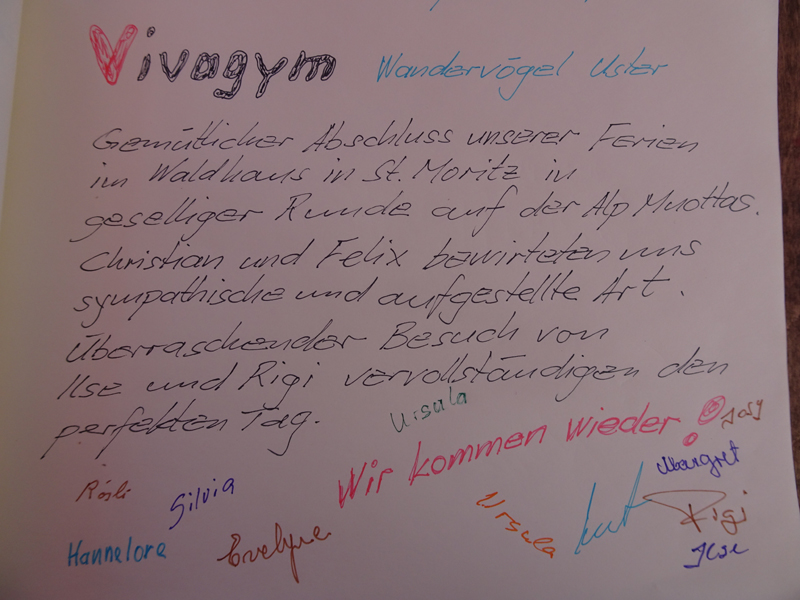 Vivagym Wandervögel Uster
Gemütlicher Abschluss unserer Ferien
im Waldhaus in St. Moritz in
geselliger Runde auf der Alp Muottas.
Christian und Felix bewirteten uns
sympathische und aufgestellte Art.
Überraschender Besuch von
Ilse und Rigi vervollständigen den
perfekten Tag.
Ursula
Wir kommen wieder!
Margret
Rösli Silvia
Ursula Rigi
Hannelore Evelyne Ilse